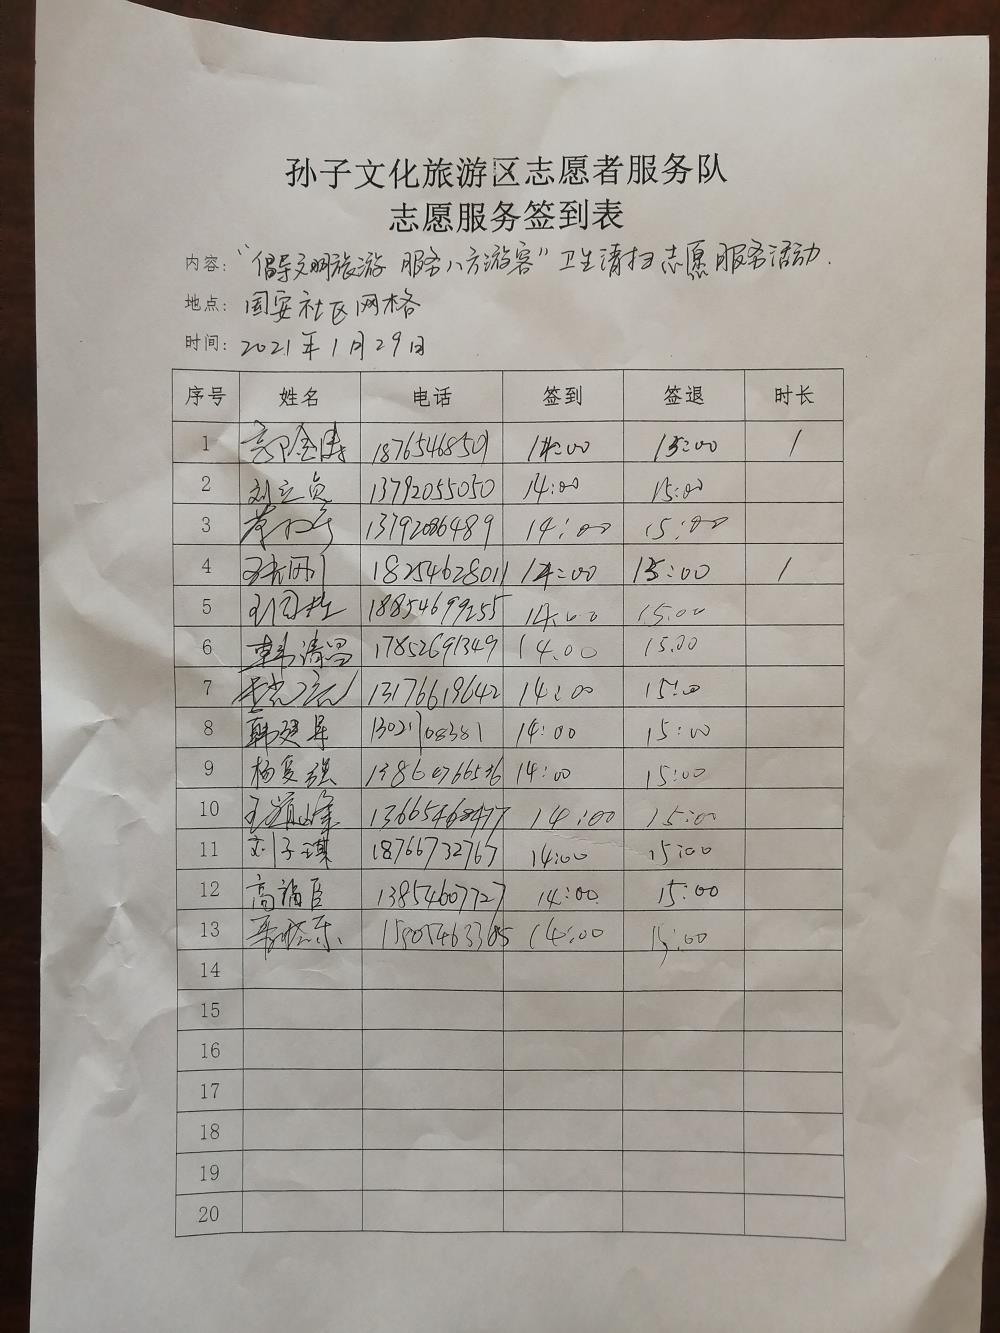 孙子文化旅游区志愿者服务队
志愿服务签到表
内容："倡导文明旅游 服务八方游客"卫生清扫志愿服务活动.
地点：国安社区网格
时间：2021年1月29日
序号 姓名 电话 签到 签退 时长
1 18765468501 14:00 15:00 1
2 刘立贞 13792055050 14:00 15:00
3 13792086489 14:00 15:00
4 18254628011 14:00 15:00 1
5 18854699255 14:00 15:00
6 韩清昌 17852691349 14.00 15.00
7 13176619642 14:00 15:00
8 韩建军 13021708381 14:00 15:00
9 杨复强 14:00 15:00
10 13665468477 14:00 15:00
11 刘子琪 18766732767 14:00 15:00
12 高福臣 13854607727 14:00 15:00
13 14:00 15:00
14
15
16
17
18
19
20